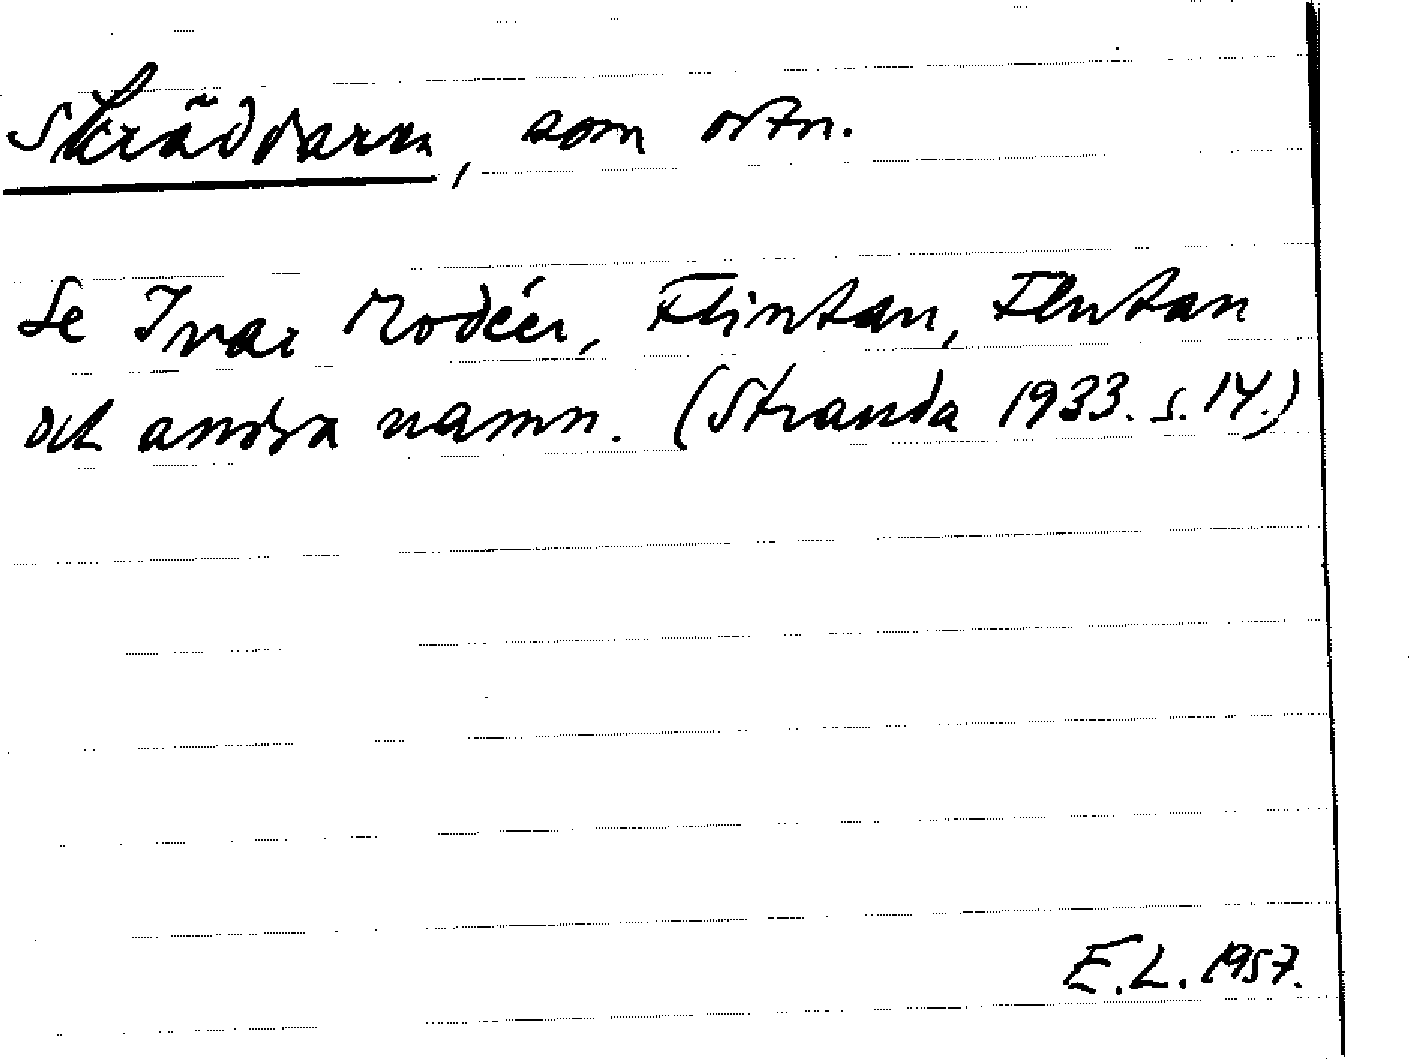 Skräddarn, som ortn.
Se Ivar Modéer, Flintan, Flutan
och andra namn. (Stranda 1933. s. 14.)
E.L. 1957.